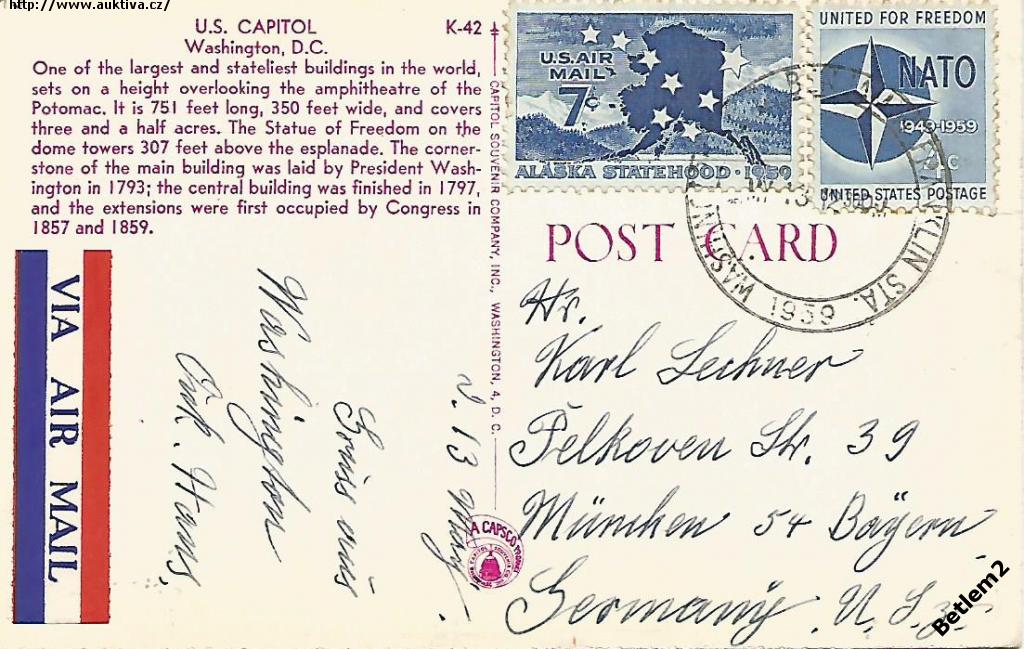 http://www.auktiva.cz/
U.S. CAPITOL
K-42
Washington, D.C.
One of the largest and stateliest buildings in the world,
sets on a height overlooking the amphitheatre of the
Potomac. It is 751 feet long, 350 feet wide, and covers
three and a half acres. The Statue of Freedom on the
dome towers 307 feet above the esplanade. The corner-
stone of the main building was laid by President Wash-
ington in 1793; the central building was finished in 1797,
and the extensions were first occupied by Congress in
1857 and 1859.
VIA AIR MAIL
13 May
Gruss aus
Washington
Onk. Hans
CAPITOL SOUVENIR COMPANY, INC., WASHINGTON, 4, D. C.
A CAPSCO
U.S. AIR
MAIL
7¢
ALASKA STATEHOOD · 1959
UNITED FOR FREEDOM
NATO
1949-1959
4c
UNITED STATES POSTAGE
FRANKLIN STA.
WASHINGTON
13
1959
POST CARD
Hr.
Karl Lechner
Pelkoven Str. 39
München 54 Bayern
Germany. U.S.
Betlem2